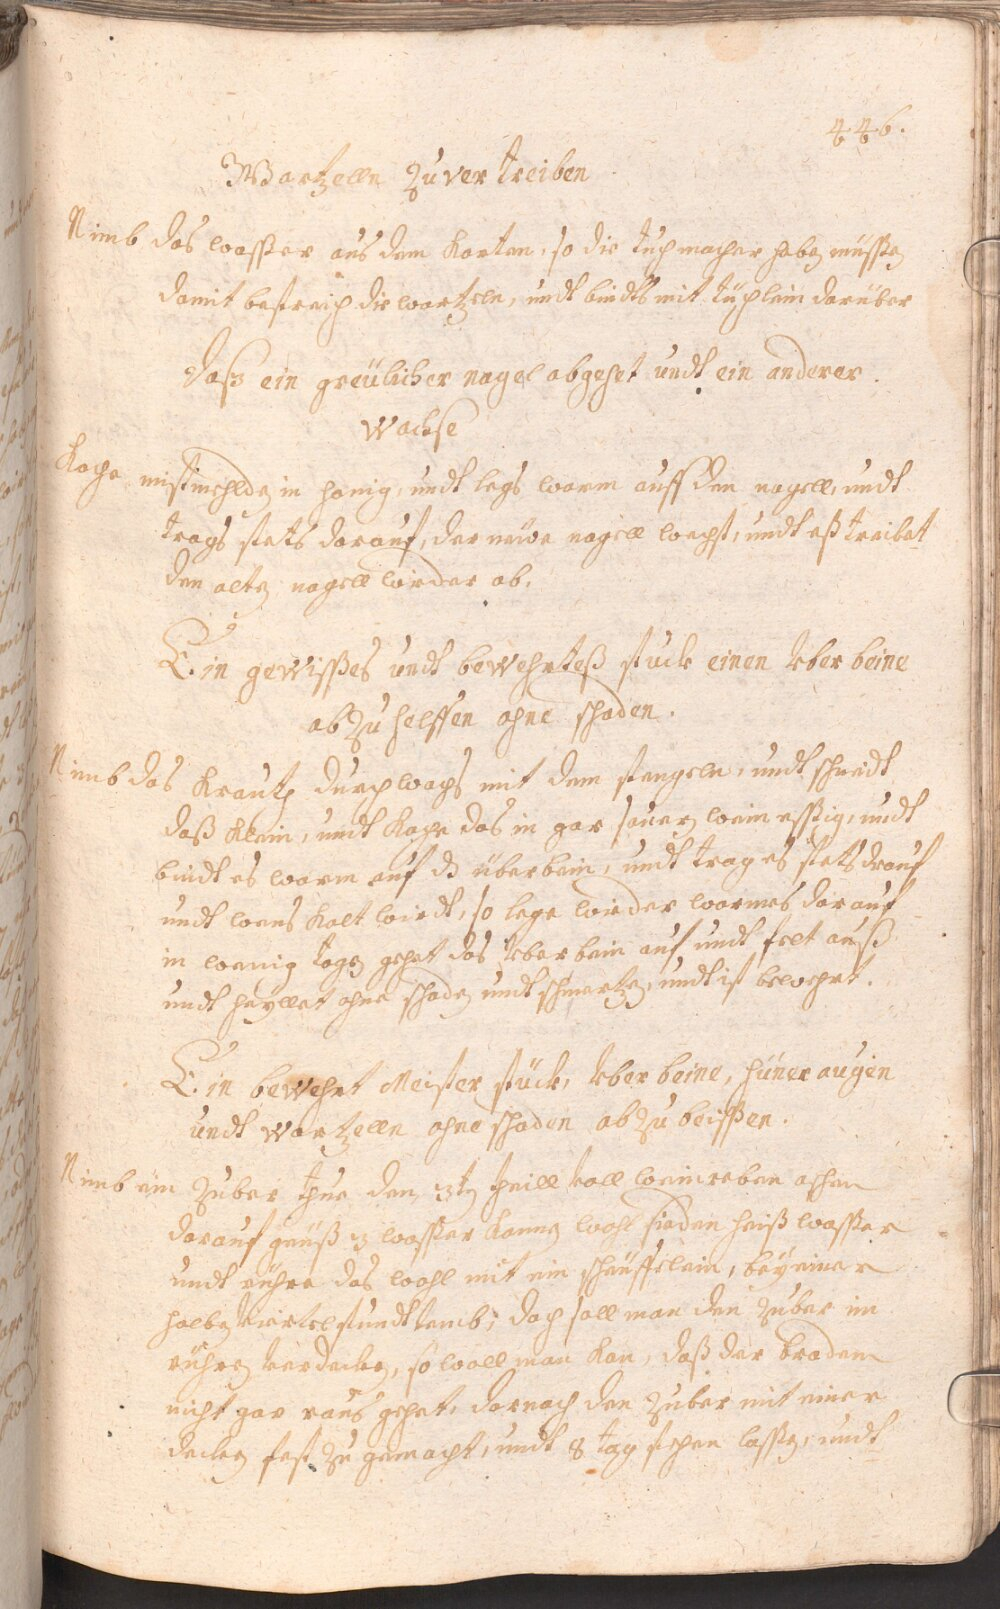 446.
Wartzelln Zuvertreiben
Nimb das wasßer aus dem Karten, so die tuchmacher haben müsßen
damit bestreich die wartzeln, undt bindts mit tüchlein darüber
dasz ein greülicher nagel abgehet undt ein anderer
wachse
Koche mistmehlden in honig, undt legs warm auff den nagell, undt
trags stets darauf, der neüe nagell wechst, undt eß treibet
den alten nagell wieder ab.
Ein gewisßes undt bewehrteß stuck einen Vberbeine
abZuhelffen ohne schaden.
Nimb das Krautz durchwachs mit dem stengeln, undt schneidt
daß klein, undt Koche das in gar sauren weinessßig, undt
bindt es warm auf dz überbein, undt trag es stets drauf
undt wans Kalt wirdt, so lege wieder warmes darauf
in wenig tagen gehet das Vberbein auf undt felt auß
undt heyllet ohne schaden undt schmertzen, undt ist bewehrt.
Ein bewehrt Meister stück, Vberbeine, hüner augen
undt wartzelln ohne schaden abZubeisßen.
Nimb ein Zuber thue den 3ten theill voll weinreben aschen
darauf geüß 3 wasßer Kannen wohl sieden heiß wasßer
undt rühre das wohl mit ein scheüffelein, bey einer
halben viertelstundt vmb; doch soll man den Zuber im
rühren verdecken, so woll man Kan, daß der bradem
nicht gar raus gehet, darnach den Zuber mit einer
decken fest Zu gemacht, undt 8 tag stehen lasßen, undt